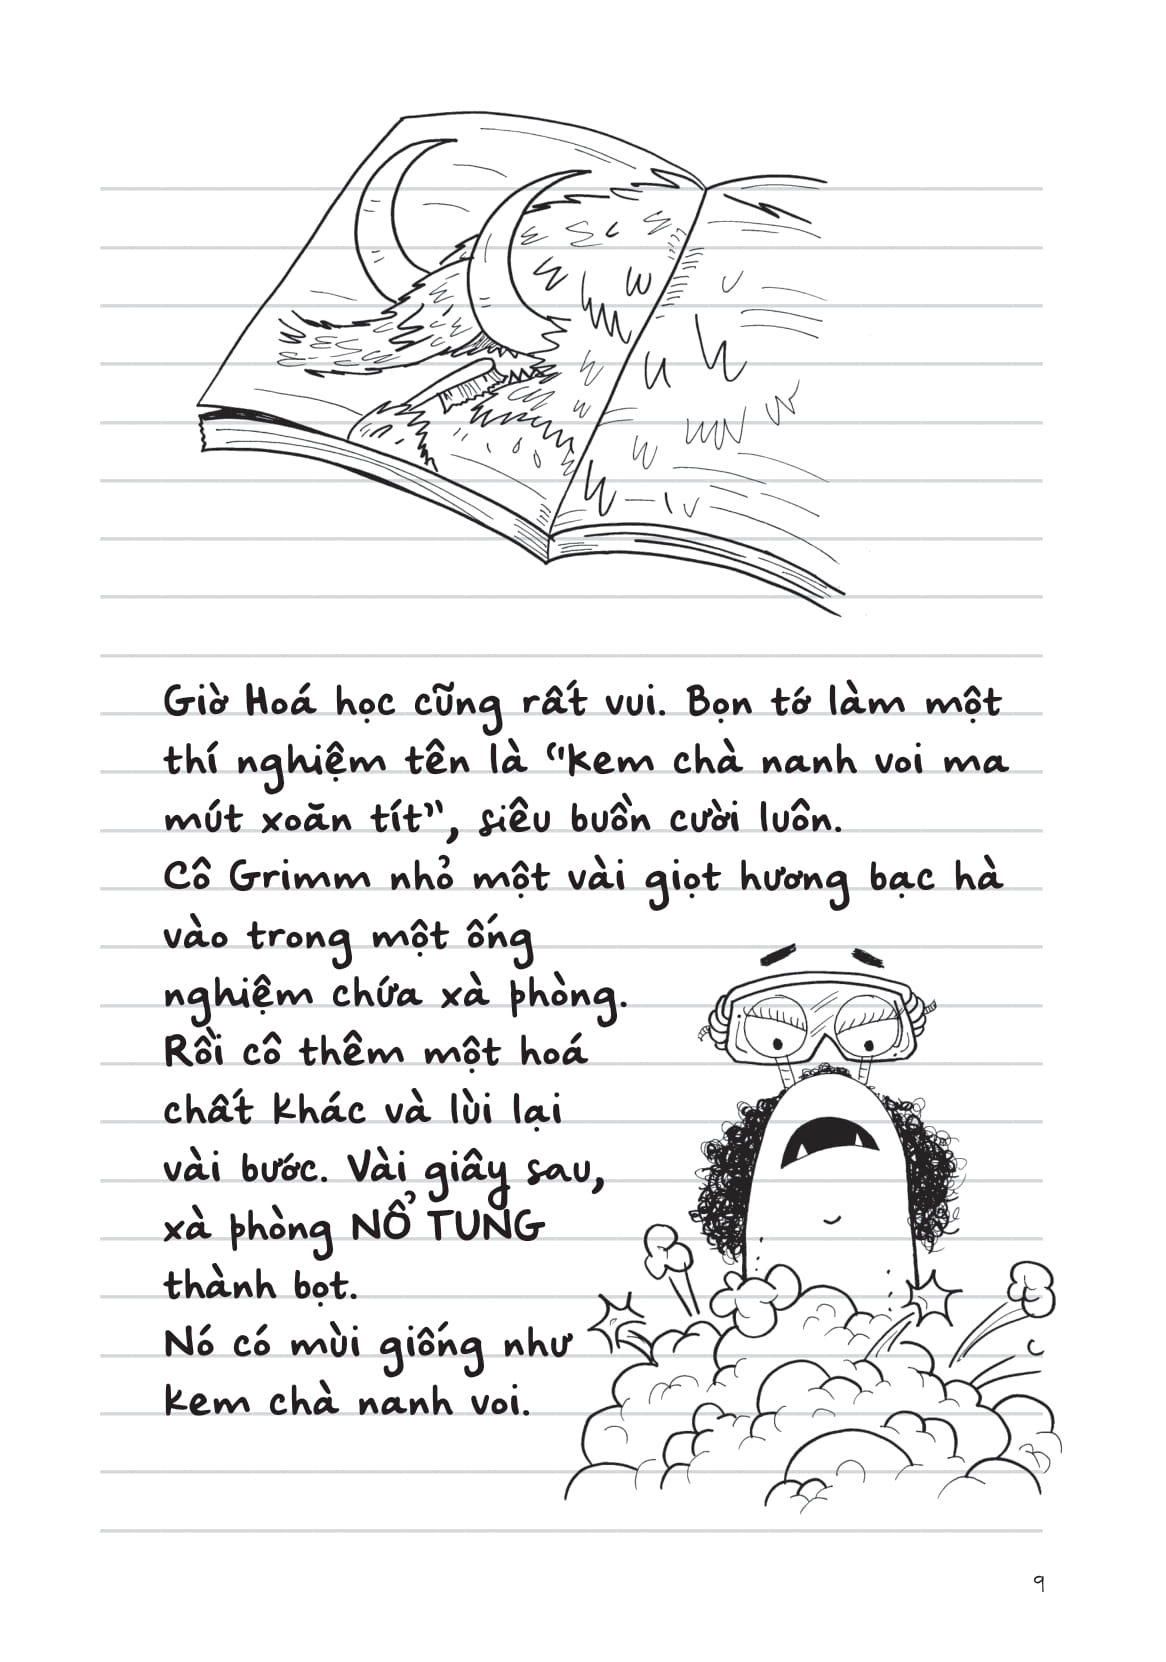 Giờ Hoá học cũng rất vui. Bọn tớ làm một
thí nghiệm tên là “kem chà nanh voi ma
mút xoăn tít”, siêu buồn cười luôn.
Cô Grimm nhỏ một vài giọt hương bạc hà
vào trong một ống
nghiệm chứa xà phòng.
Rồi cô thêm một hoá
chất khác và lùi lại
vài bước. Vài giây sau,
xà phòng NỔ TUNG
thành bọt.
Nó có mùi giống như
kem chà nanh voi.
9